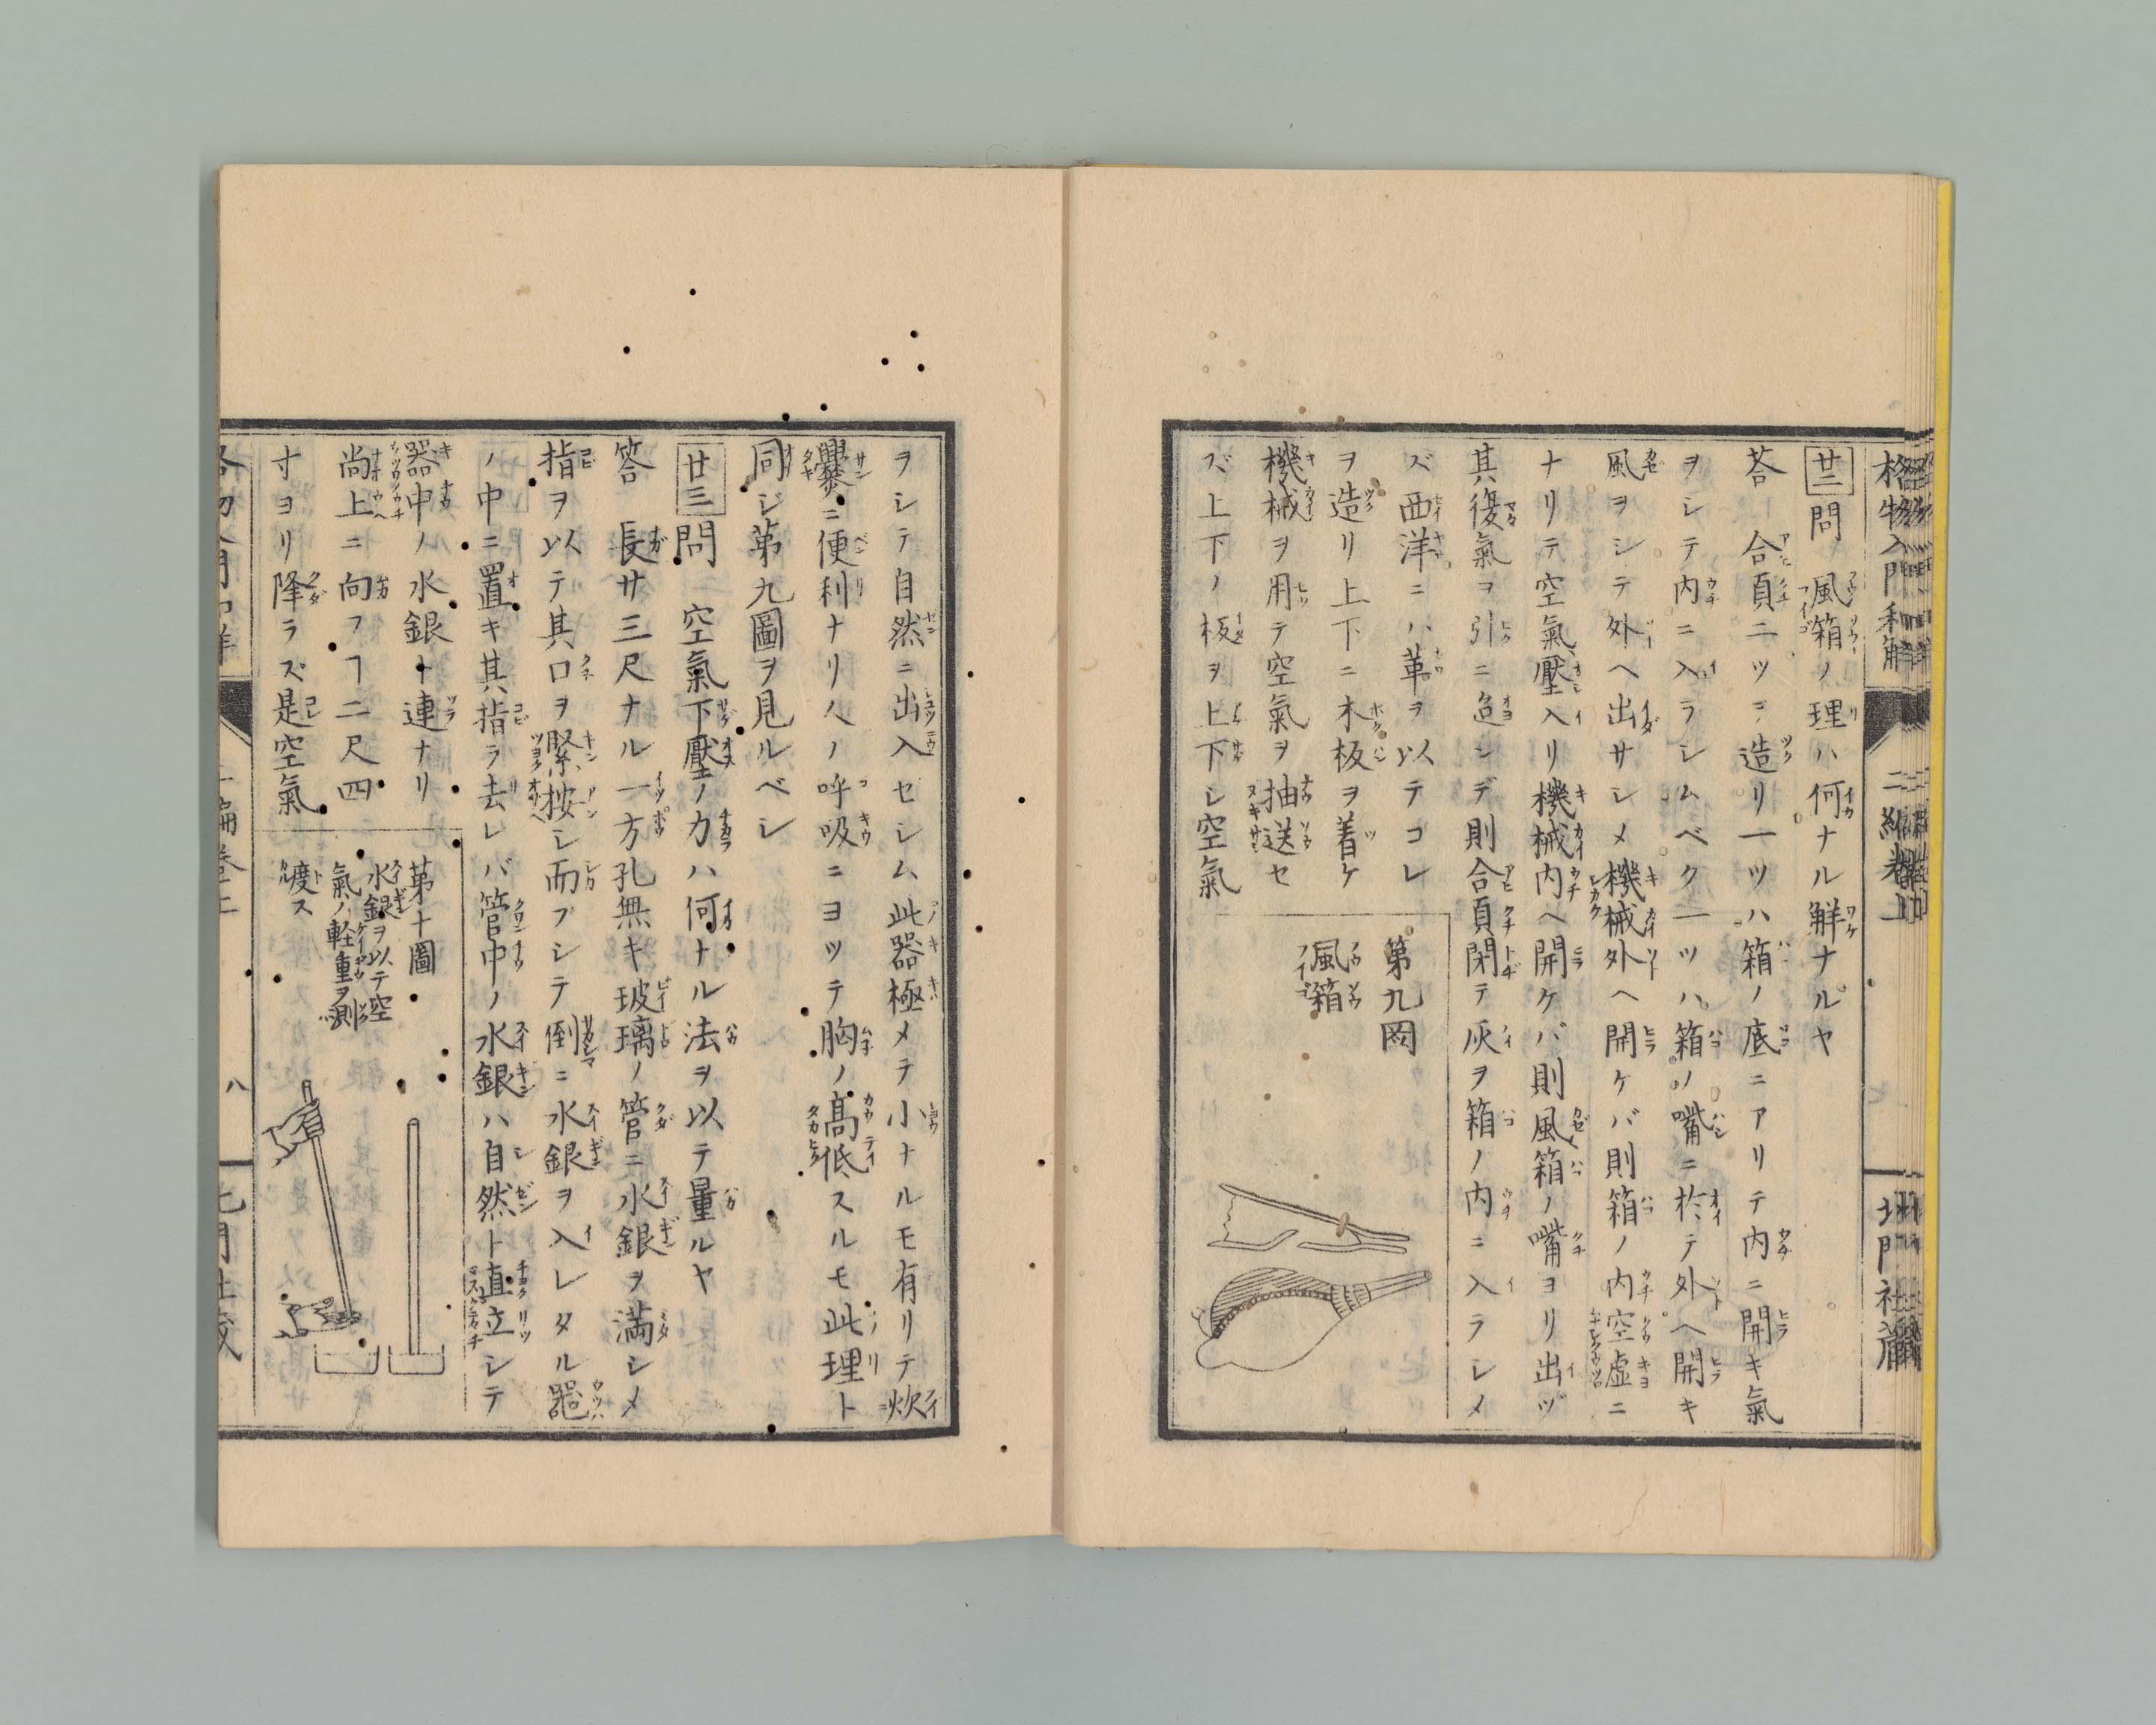 格物入門和解
二編卷上
北門社藏
廿二 問 風箱ノ理ハ何ナル觧ナルヤ
荅 合頁二ツヲ造リ一ツハ箱ノ底ニアリテ内ニ開キ氣
ヲシテ内ニ入ラシムベク一ツハ箱ノ嘴ニ於テ外ヘ開キ
風ヲシテ外ヘ出サシメ機械外ヘ開ケバ則箱ノ内空虚ニ
ナリテ空氣壓入リ機械内ヘ開ケバ則風箱ノ嘴ヨリ出ヅ
其復氣ヲ引ニ迨ンデ則合頁閉テ灰ヲ箱ノ内ニ入ラシメ
ズ西洋ニハ革ヲ以テコレ
ヲ造リ上下ニ木板ヲ着ケ
機械ヲ用テ空氣ヲ抽送セ
ズ上下ノ板ヲ上下シ空氣
第九圖
風箱
ヲシテ自然ニ出入セシム此器極メテ小ナルモ有リテ炊
爨ニ便利ナリ人ノ呼吸ニヨツテ胸ノ髙低スルモ此理ト
同ジ第九圖ヲ見ルベシ
廿三 問 空氣下壓ノ力ハ何ナル法ヲ以テ量ルヤ
答 長サ三尺ナル一方孔無キ玻璃ノ管ニ水銀ヲ満シメ
指ヲ以テ其口ヲ緊按シ而フシテ倒ニ水銀ヲ入レタル器
ノ中ニ置キ其指ヲ去レバ管中ノ水銀ハ自然ト直立シテ
器中ノ水銀ト連ナリ
尚上ニ向フヿ二尺四
寸ヨリ降ラズ是空氣
第十圖
水銀ヲ以テ空
氣ノ軽重ヲ測
ル
八